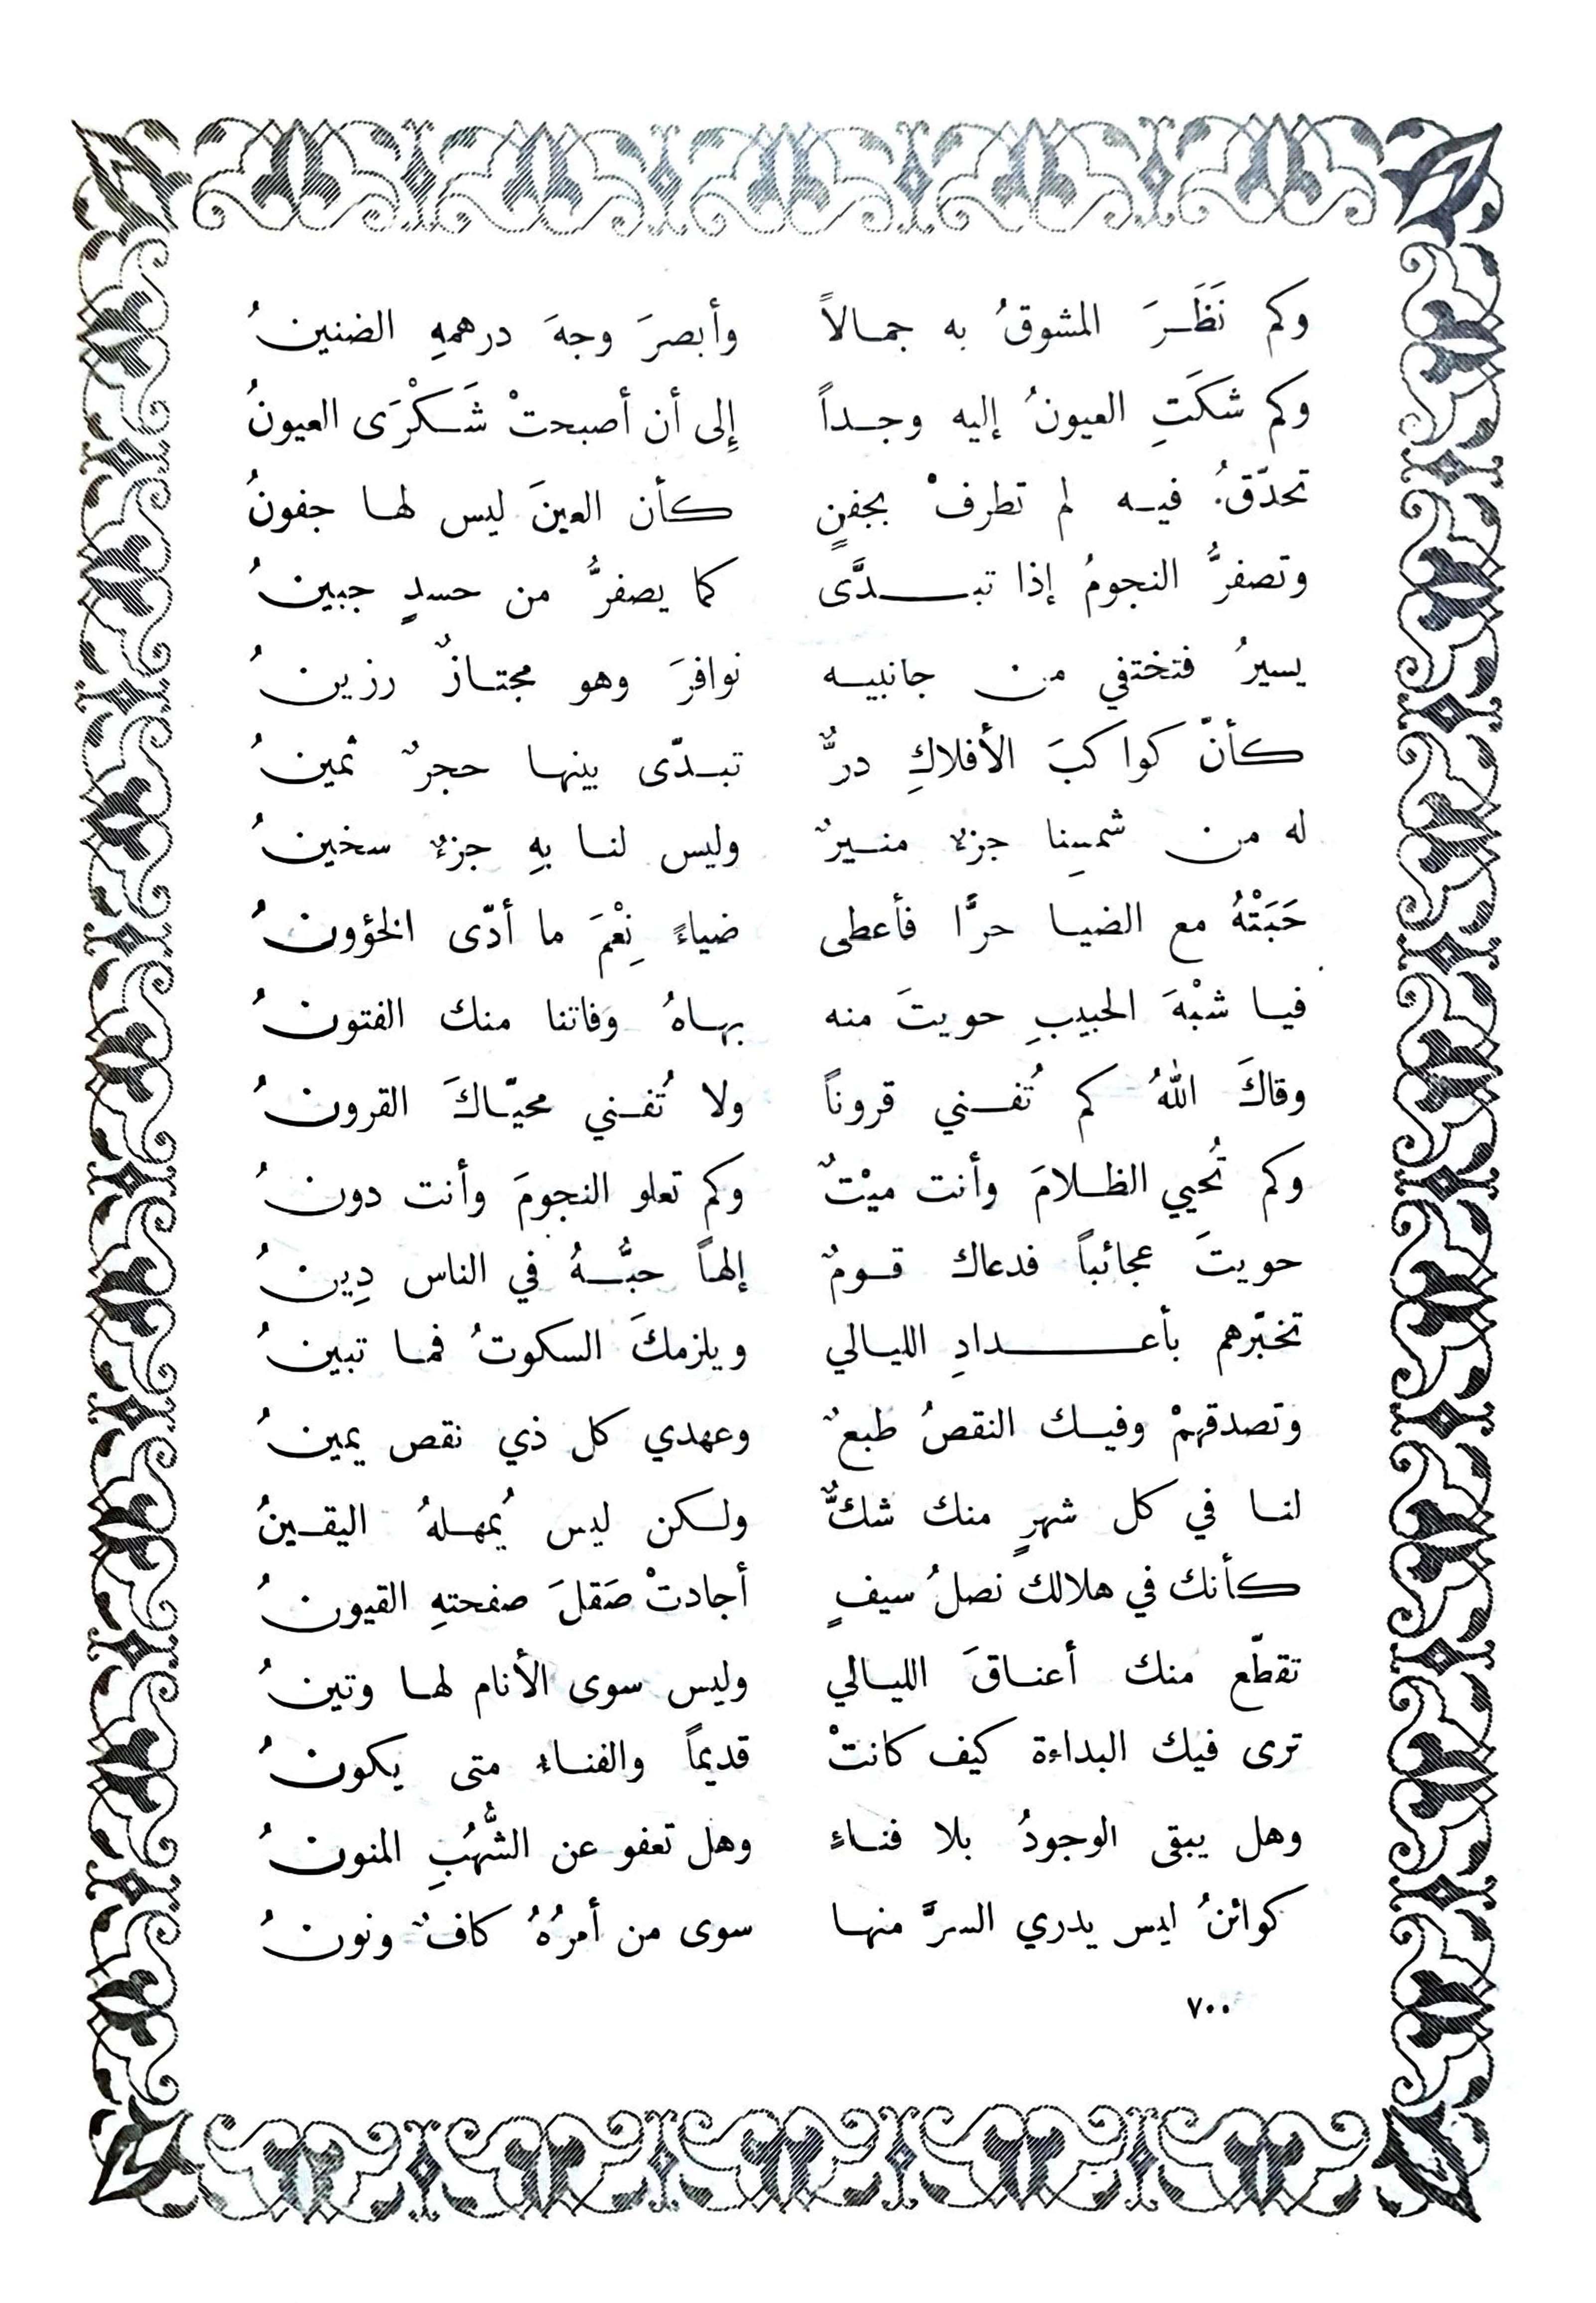 وكم نَظَـرَ المشوقُ به جمـالاً وأبصرَ وجهَ درهمهِ الضنينُ
وكم شكَتِ العيونُ إليه وجـداً إلى أن أصبحتْ شَـكْرَى العيونُ
تحدّقُ فيـه لم تطرفْ بجفنٍ كأن العينَ ليس لهـا جفونُ
وتصفرُّ النجومُ إذا تبـدَّى كما يصفرُّ من حسدٍ جبينُ
يسيرُ فتختفي من جانبيـه نوافرَ وهو مجتـازٌ رزينُ
كأنّ كواكبَ الأفلاكِ درٌّ تبـدّى بينهـا حجرٌ ثمينُ
له من شمسِنا جزءٌ منـيرٌ وليس لنـا بهِ جزءٌ سخينُ
حَبَتْهُ مع الضيـا حرًّا فأعطى ضياءً نِعْمَ ما أدّى الخؤونُ
فيـا شبْهَ الحبيبِ حويتَ منه بهـاهُ وفاتنا منك الفتونُ
وقاكَ اللهُ كم تُفـني قروناً ولا تُفـني محيّـاكَ القرونُ
وكم تُحيي الظـلامَ وأنت ميْتٌ وكم تعلو النجومَ وأنت دونُ
حويتَ عجائباً فدعاك قـومٌ إلهـاً حبُّـهُ في الناس دِينُ
تخبّرهم بأعـدادِ الليـالي ويلزمكَ السكوتُ فمـا تبينُ
وتصدقهمْ وفيـك النقصُ طبعٌ وعهدي كل ذي نقص يمينُ
لنـا في كل شهرٍ منك شكٌّ ولـكن ليس يُمهـلهُ اليقـينُ
كأنك في هلالك نصلُ سيفٍ أجادتْ صَقلَ صفحتهِ القيونُ
تقطّع منك أعنـاقَ الليـالي وليس سوى الأنام لهـا وتينُ
ترى فيك البداءة كيف كانتْ قديماً والفنـاءُ متى يكونُ
وهل يبقى الوجودُ بلا فنـاءٍ وهل تعفو عن الشُّهُبِ المنونُ
كوائنُ ليس يدري السرَّ منهـا سوى من أمرُهُ كافٌ ونونُ
٧٠٠